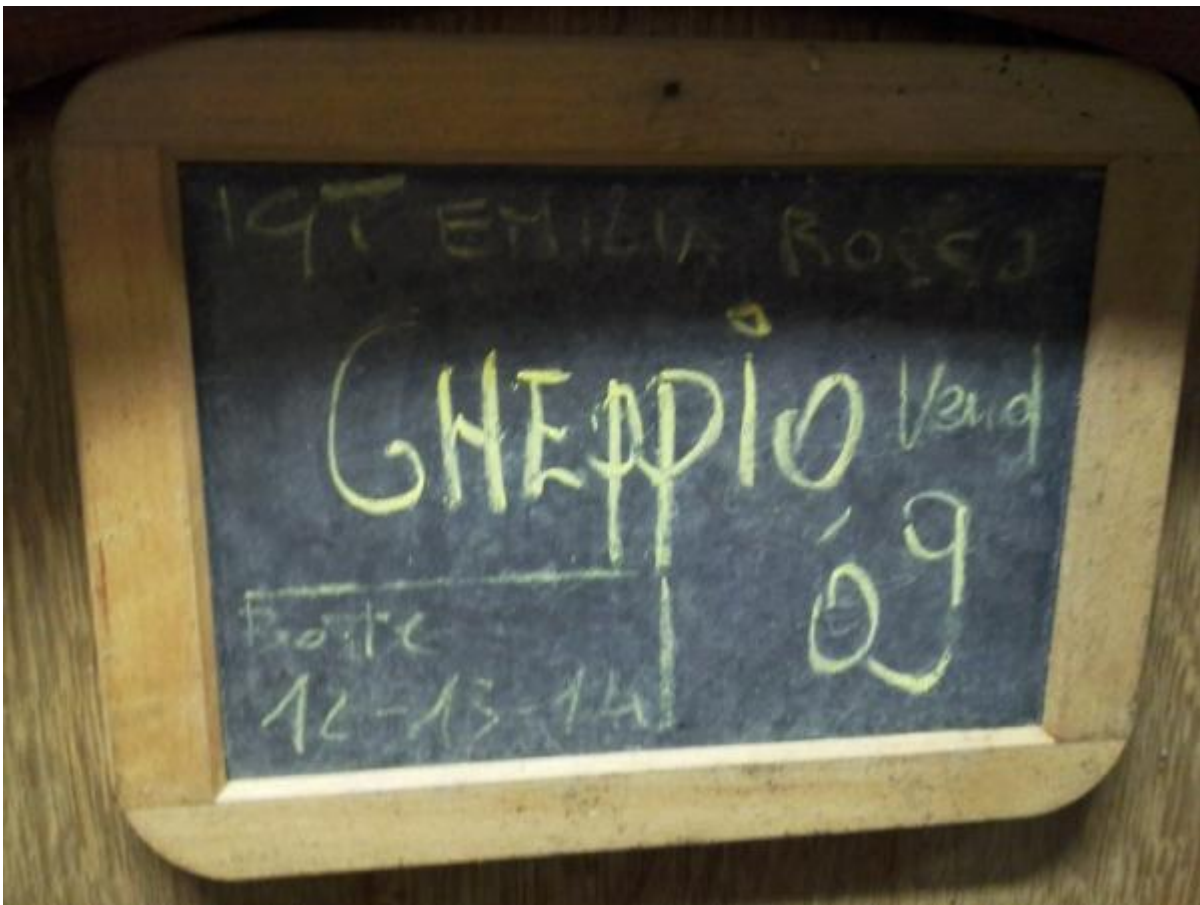 IGT EMILIA ROSSO
GHEPPIO Vend
'09
Botte
12-13-14